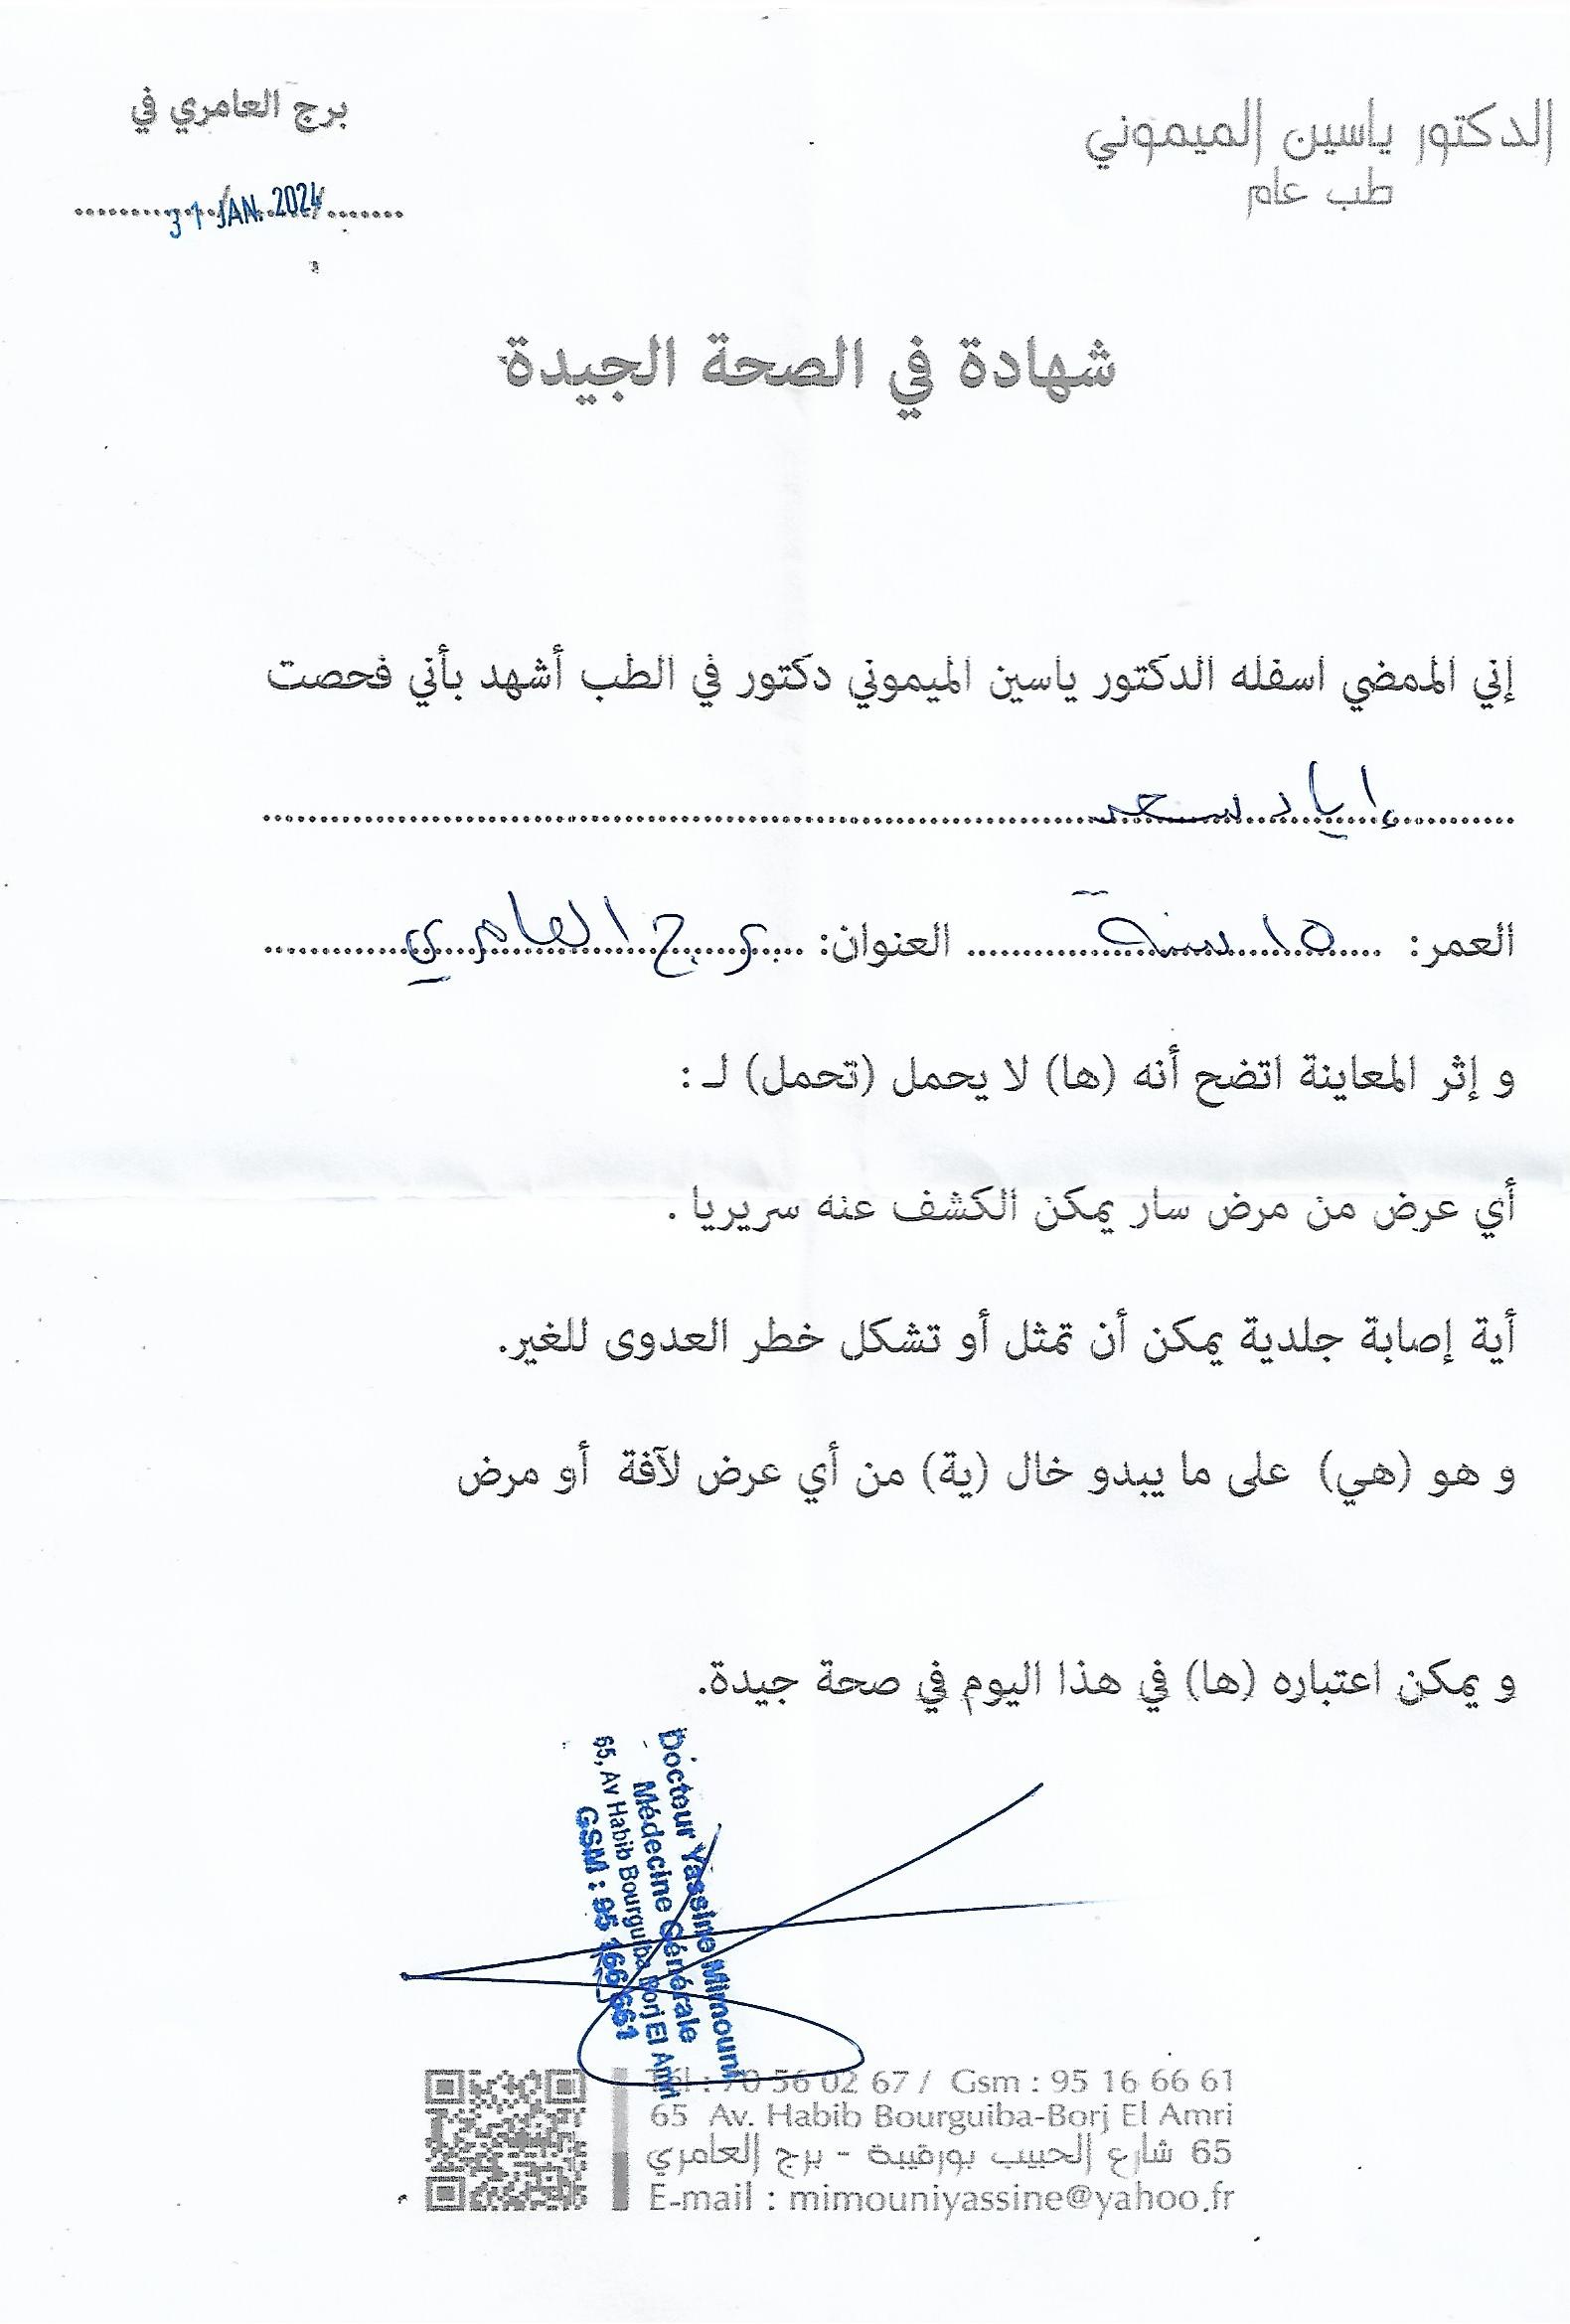 الدكتور ياسين الميموني
طب عام
برج العامري في
31 JAN. 2024
شهادة في الصحة الجيدة
إني الممضي اسفله الدكتور ياسين الميموني دكتور في الطب أشهد بأني فحصت
إياد سعد
العمر: 15 سنة العنوان: برج العامري
و إثر المعاينة اتضح أنه (ها) لا يحمل (تحمل) لـ :
أي عرض من مرض سار يمكن الكشف عنه سريريا .
أية إصابة جلدية يمكن أن تمثل أو تشكل خطر العدوى للغير.
و هو (هي) على ما يبدو خال (ية) من أي عرض لآفة أو مرض
و يمكن اعتباره (ها) في هذا اليوم في صحة جيدة.
Docteur Yassine Mimouni
Médecine Générale
65, Av Habib Bourguiba Borj El Amri
GSM : 95 166 661
Tél : 70 56 02 67 / Gsm : 95 16 66 61
65 Av. Habib Bourguiba-Borj El Amri
65 شارع الحبيب بورقيبة - برج العامري
E-mail : mimouniyassine@yahoo.fr